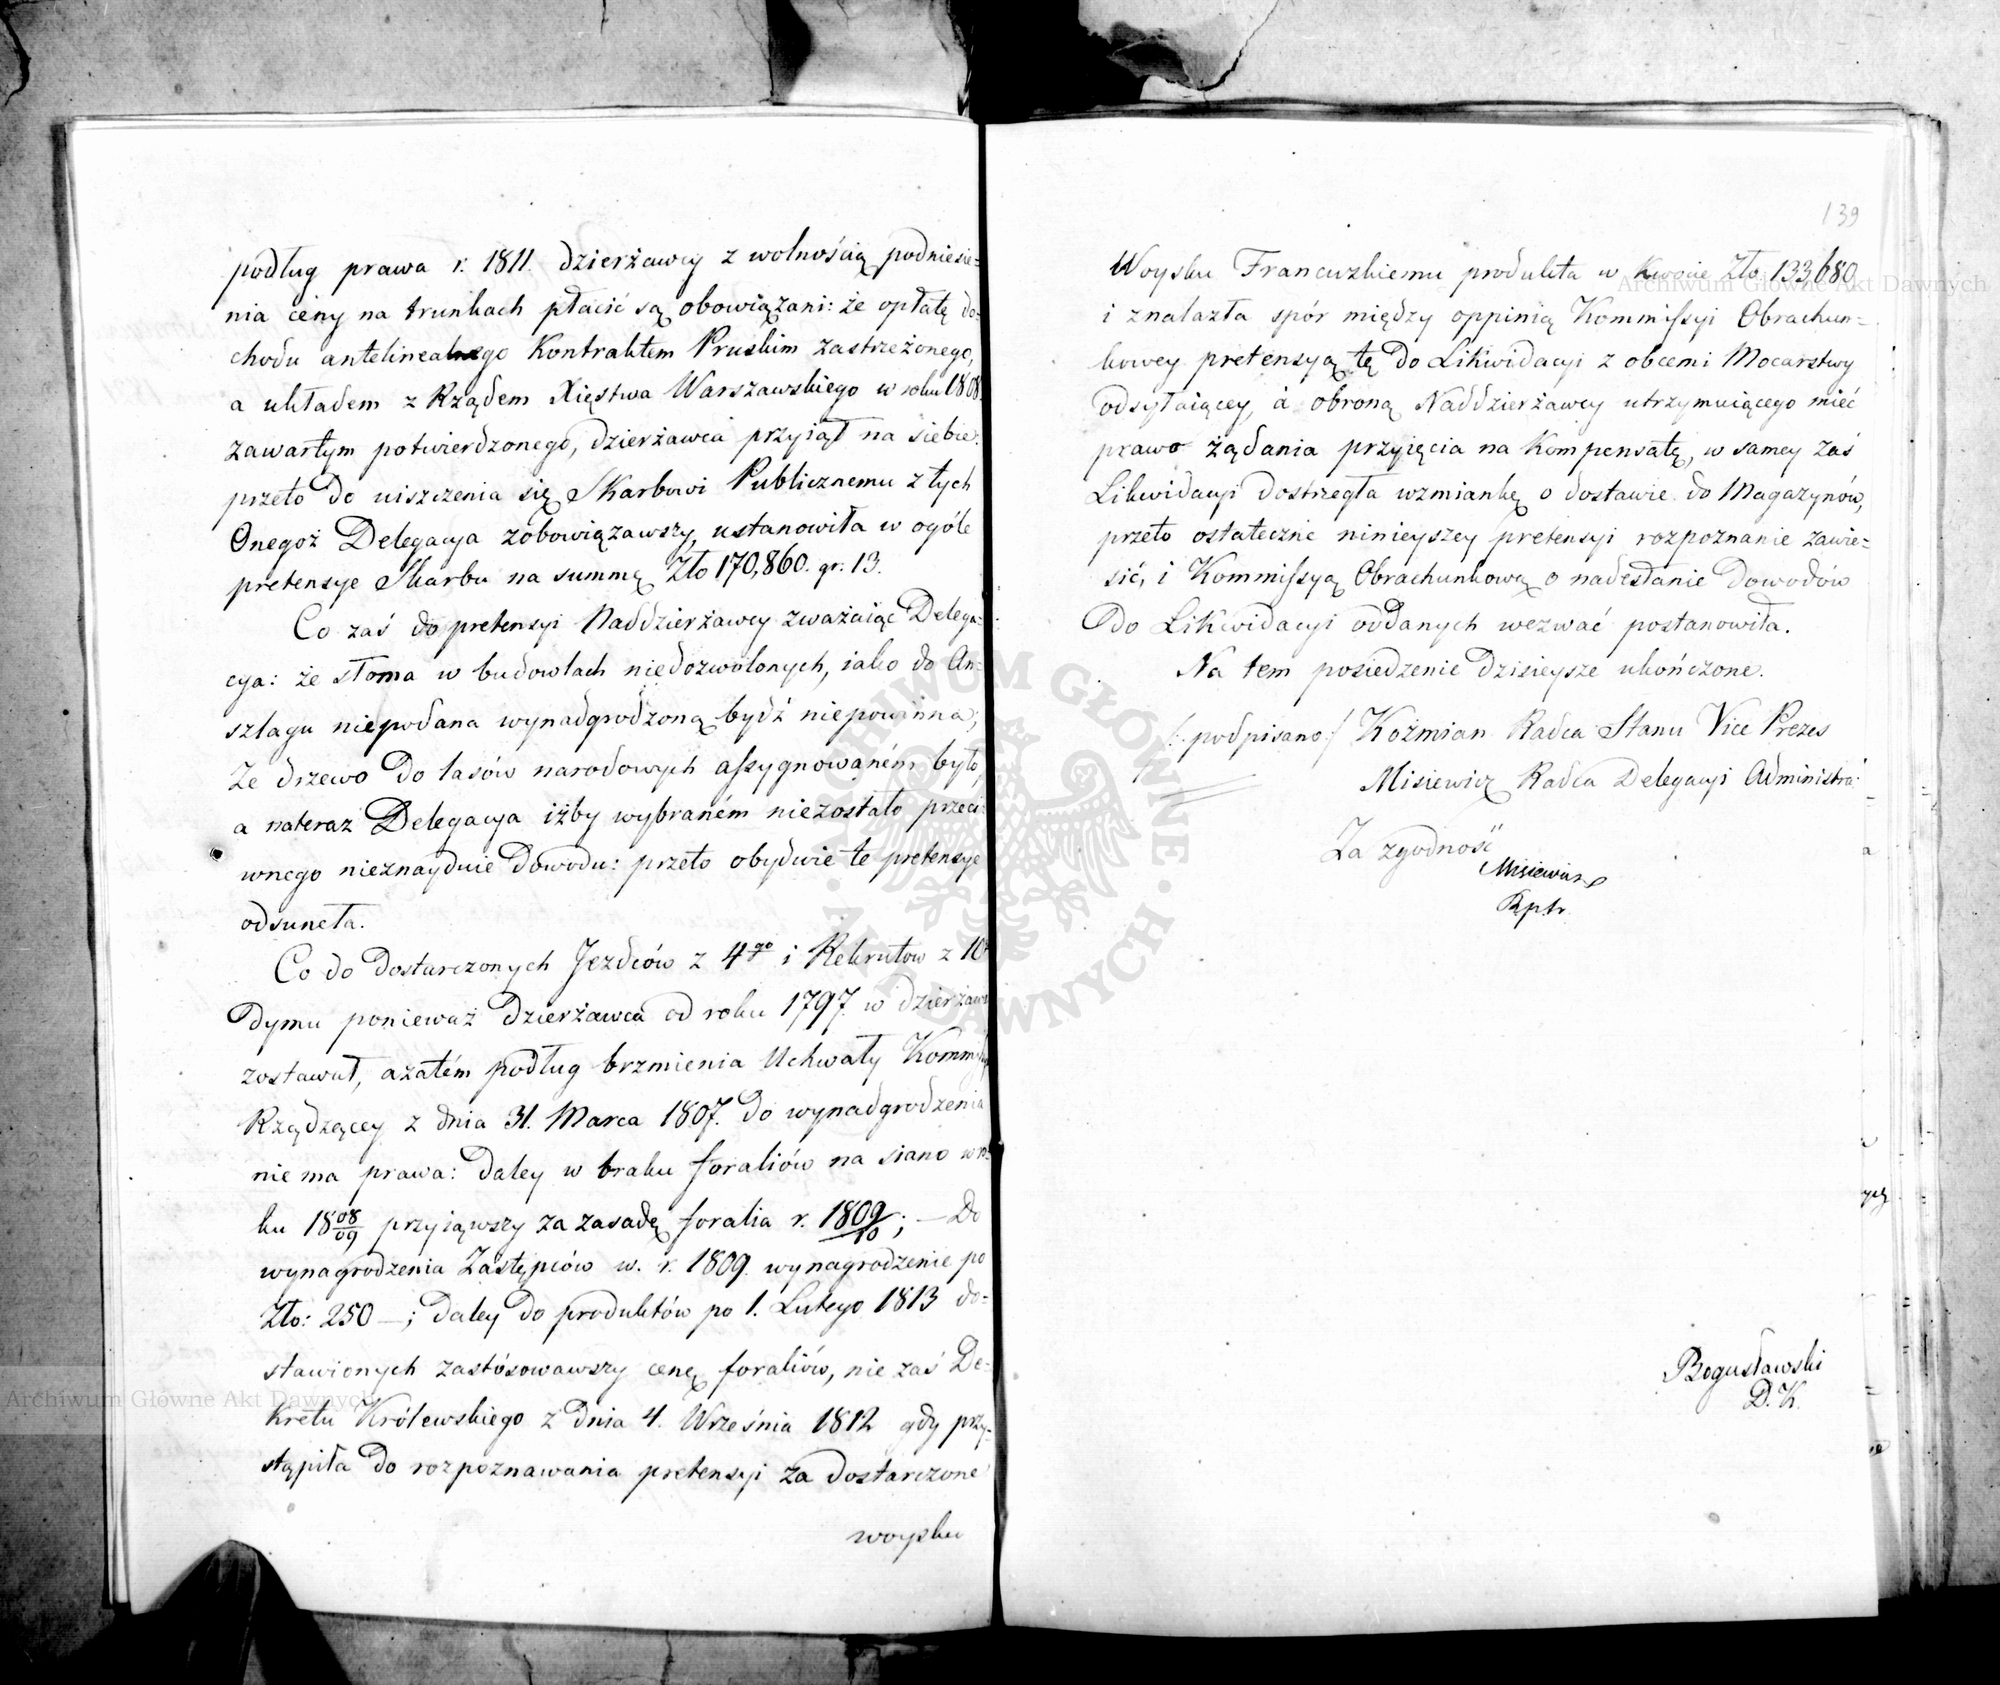 podług prawa r. 1811. dzierżawcy z wolnością podniesie=
nia ceny na trunkach płacić są obowiązani: że opłatę do=
chodu antelinealnego Kontraktem Pruskim zastrzeżonego,
a układem z Rządem Xięstwa Warszawskiego w roku 1808.
zawartym potwierdzonego, dzierżawca przyiął na siebie:
przeto do uiszczenia się Skarbowi Publicznemu z tych
Onegoż Delegacya zobowiązawszy, ustanowiła w ogóle
pretensye Skarbu na summę Zło 170,860. gr. 13.
Co zaś do pretensyi Naddzierżawcy zważaiąc Delega=
cya: że słoma w budowlach niedozwolonych, iako do An=
szlagu niepodana wynadgrodzoną bydź niepowinna;
Że drzewo do lasów narodowych assygnowaném było,
a nateraz Delegacya iżby wybraném niezostało przeci=
wnego nieznayduie dowodu: przeto obydwie te pretensye
odsuneła.
Co do dostarczonych Jezdców z 4go i Rekrutow z 10.
Dymu ponieważ Dzierżawca od roku 1797. w dzierżawie
zostawał, azatém podług brzmienia Uchwały Kommissyi
Rządzącey z dnia 31. Marca 1807. do wynadgrodzenia
nie ma prawa: daley w braku foraliów na siano w ro=
ku 1808/09 przyiąwszy za zasadę foralia r. 1809/10; — Do
wynagrodzenia Zastępców w. r. 1809. wynagrodzenie po
Zło: 250 —; daley do produktów po 1. Lutego 1813 do=
stawionych zastósowawszy cenę foraliów, nie zaś De=
kretu Królewskiego z dnia 4. Września 1812 gdy przy=
stąpiła do rozpoznawania pretensyi za dostarczone
woysku
139
Woysku Francuzkiemu produkta w Kwocie Zło 133,680.
i znalazła spór między oppinią Kommissyi Obrachun=
kowey pretensyą tę do Likwidacyi z obcemi Mocarstwy
odsyłaiącey, á obroną Naddzierżawcy utrzymuiącego mieć
prawo żądania przyięcia na Kompensatę, w samey zaś
Likwidacyi dostrzegła wzmiankę o dostawie do Magazynów,
przeto ostateczne ninieyszey pretensyi rozpoznanie zawie=
sić, i Kommissyą Obrachunkową o nadesłanie Dowodów
Do Likwidacyi oddanych wezwać postanowiła.
Na tem posiedzenie dzisieysze ukończone.
/: podpisano :/ Koźmian Radca Stanu Vice Prezes
Misiewicz Radca Delegacyi Administra:
Za zgodność
Misiewicz
Bogusławski
D. K.
Archiwum Główne Akt Dawnych
Archiwum Główne Akt Dawnych
ARCHIWUM GŁÓWNE AKT DAWNYCH